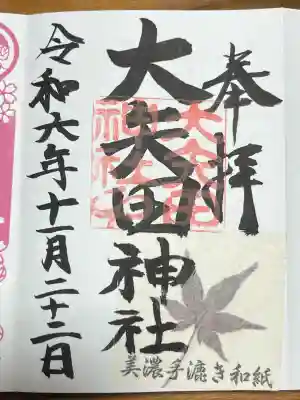 奉拝
大矢田神社
令和六年十一月二十二日
美濃手漉き和紙